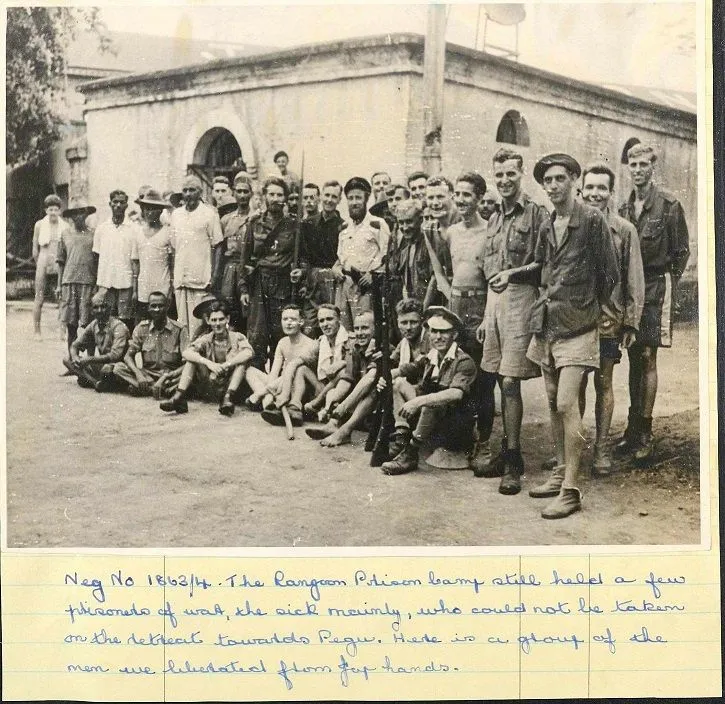 Neg No 1863/4. The Rangoon Prison Camp still held a few
prisoners of war, the sick mainly, who could not be taken
on the retreat towards Pegu. Here is a group of the
men we liberated from Jap hands.